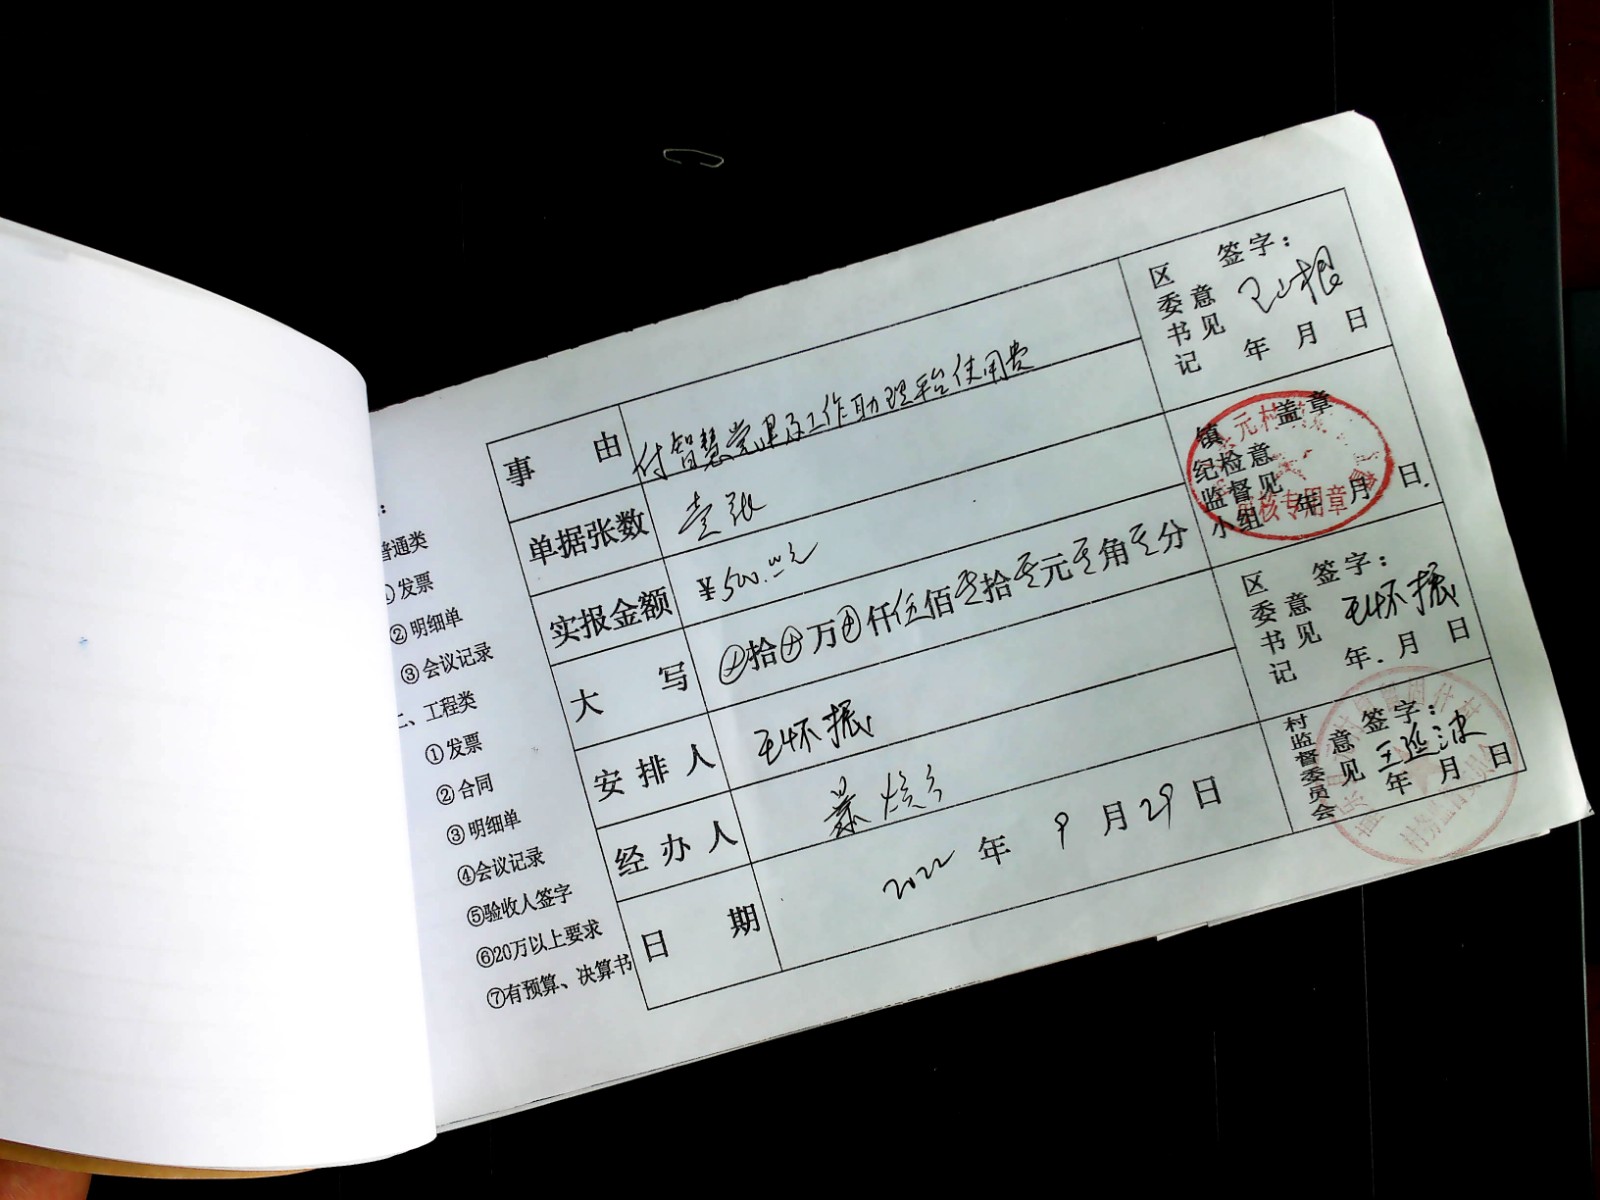 ：
普通类
①发票
②明细单
③会议记录
二、工程类
①发票
②合同
③明细单
④会议记录
⑤验收人签字
⑥20万以上要求
⑦有预算、决算书
事由 付智慧党建及工作助理平台使用费
单据张数 壹张
实报金额 ¥500.00元
大写 ⊕拾⊕万⊕仟伍佰零拾零元零角零分
安排人 王怀振
经办人
日期 2022年9月29日
区委书记意见 签字：
年 月 日
镇纪检监督小组意见 盖章
年 月 日
元村
审核专用章
区委书记意见 签字：
王怀振
年 月 日
村监督委员会意见 签字：
王延波
年 月 日